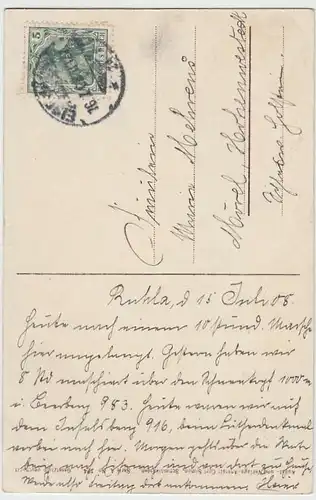 5
Fräulein
Anna Mehrens
Mörel Hohenwestedt
Holstein
Ruhla, d 15 Juli 08.
Heute nach einem 10 stünd. Marsche
hier angelangt. Gestern haben wir
8 Std marschiert über den Schneekopf 1000 m
u. Beerberg 983. Heute waren wir auf
dem Inselsberg 916, beim Lutherdenkmal
vorbei nach hier. Morgen gehts über die Wart-
burg nach Eisenach und von dort zu Hause.